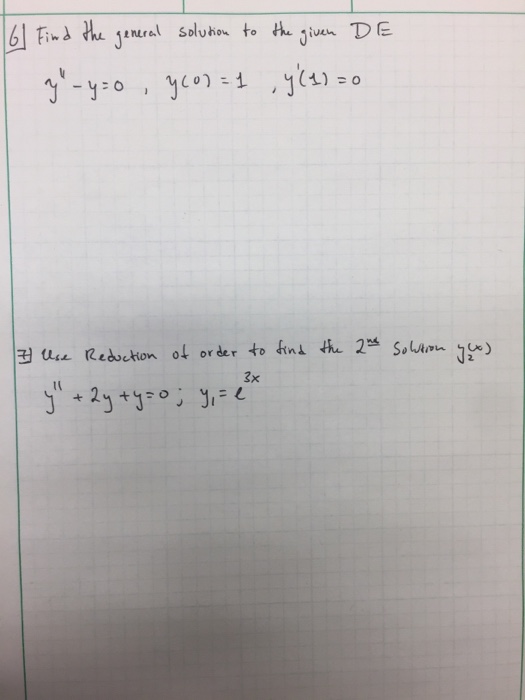 6] Find the general solution to the given DE
y" - y = 0 , y(0) = 1 , y'(1) = 0
7] Use Reduction of order to find the 2nd Solution y₂(x)
y" + 2y + y = 0 ; y₁ = e^3x